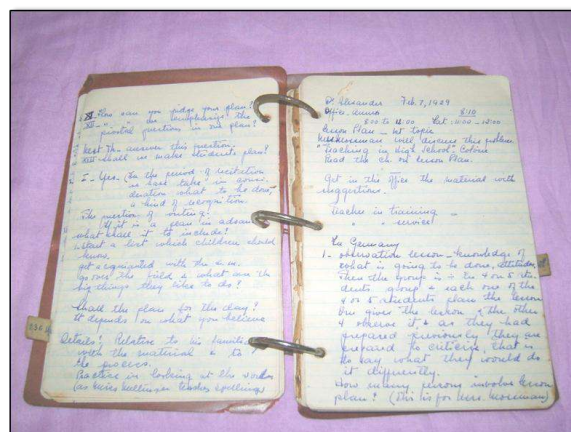 XI - How can you judge your plan?
XII - " " we emphasize the
pivotal question in our plan?
Next Th. answer this question.
XIII shall we make students plan?
I - Yes. (In the period of recitation
we must take in consi-
deration what to be done
a kind of recognition.
The question of writing?
If it is a plan in advance
what shall it to include?
a list which children should
know.
get acquainted with the
go over the field & what are the
big things they like to do?
Shall the plan for the day?
It depends on what you believe
336
Details? Relative to his
with the material & to
the process.
Practice in looking at the
(as teaches spelling)
Dr Alexander Feb. 7, 1929
Office hours 8:10
8:00 to 12:00 Sat. 11:00 - 12:00
Lesson Plan - 1st topic
will discuss this problem
"Teaching in High School" Colvin
Read the ch. on Lesson Plan.
Get in this office the material with
suggestions.
Teacher in training -
" " service!
In Germany
1 - observation lesson - knowledge of
what is going to be done,
Then the group is in 4 or 5 stu-
dents group & each one of the
4 or 5 students plan the lesson
One gives the lesson & the others
4 observe it, & as they had
prepared previously they are
prepared to criticize, that is
to say what they would do
it differently.
How many persons involve lesson
plan? (This is for Mrs.